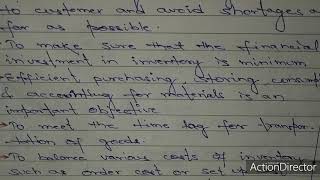 to customer and avoid shortages as
far as possible.
To make sure that the financial
investment in inventory is minimum
Efficient purchasing, storing, consum
& accounting for materials is an
important objective
→To meet the time lag for transpor-
tation of goods.
→To balance various costs of inventory
such as order cost or set up
ActionDirector